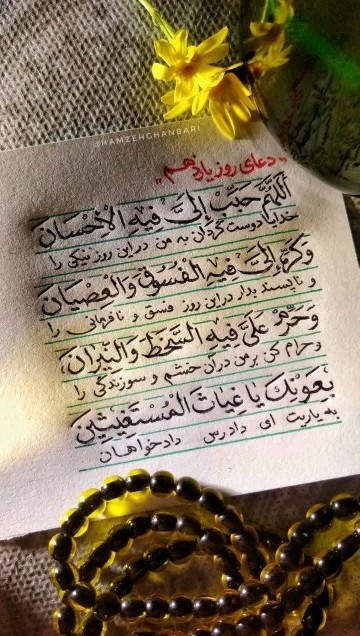 @HAMZEHGHANBARI
"دعای روز یازدهم"
اَللّهُمَّ حَبِّبْ اِلَیَّ فیهِ الْاِحْسانَ
خدایا دوست گردان به من در این روز نیکی را
وَ کَرِّهْ اِلَیَّ فیهِ الْفُسُوقَ وَ الْعِصْیانَ
و ناپسند بدار در این روز فسق و نافرمانی را
وَ حَرِّمْ عَلَیَّ فیهِ السَّخَطَ وَ النّیرانَ
و حرام کن بر من در آن خشم و سوزندگی را
بِعَوْنِکَ یا غِیاثَ الْمُسْتَغیثینَ
به یاریت ای دادرس دادخواهان